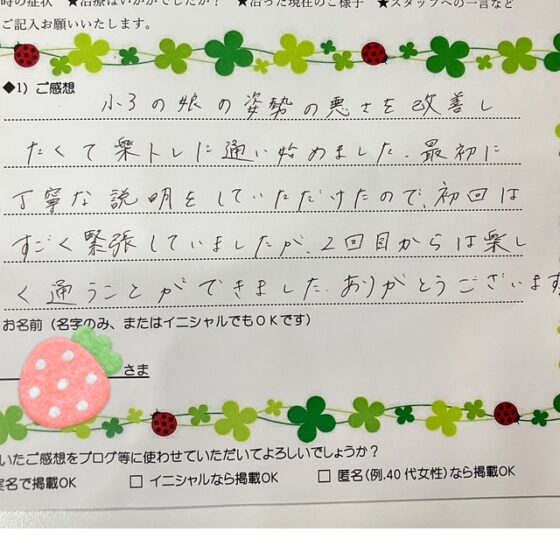 時の症状　★治療はいかがでしたか？　★治った現在のご様子　★スタッフへの一言など
ご記入お願いいたします。
◆1）ご感想
小3の娘の姿勢の悪さを改善し
たくて楽トレに通い始めました。最初に
丁寧な説明をしていただけたので、初回は
すごく緊張していましたが、2回目からは楽し
く通うことができました。ありがとうございます
お名前（名字のみ、またはイニシャルでもOKです）
さま
いたご感想をブログ等に使わせていただいてよろしいでしょうか？
実名で掲載OK　□ イニシャルなら掲載OK　□ 匿名（例.40代女性）なら掲載OK